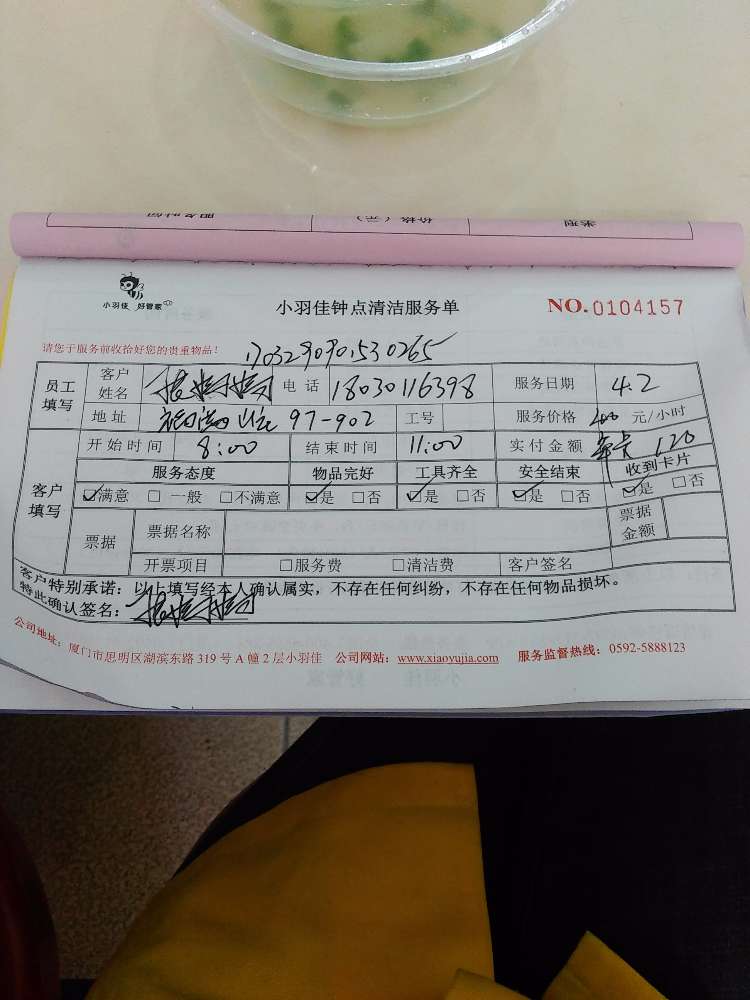 服务时间 价格(元) 类型
小羽佳 好管家
小羽佳钟点清洁服务单 NO.0104157
请您于服务前收拾好您的贵重物品! 1703290901530265
员工填写 客户姓名 电话 18030116398 服务日期 4.2
地址 97-902 工号 服务价格 元/小时
客户填写 开始时间 8:00 结束时间 11:00 实付金额 年卡 120
服务态度 物品完好 工具齐全 安全结束 收到卡片
☑满意 □一般 □不满意 ☑是 □否 ☑是 □否 ☑是 □否 ☑是 □否
票据 票据名称 票据金额
开票项目 □服务费 □清洁费 客户签名
客户特别承诺:以上填写经本人确认属实,不存在任何纠纷,不存在任何物品损坏。
特此确认签名:
公司地址:厦门市思明区湖滨东路319号A幢2层小羽佳 公司网站:www.xiaoyujia.com 服务监督热线:0592-5888123